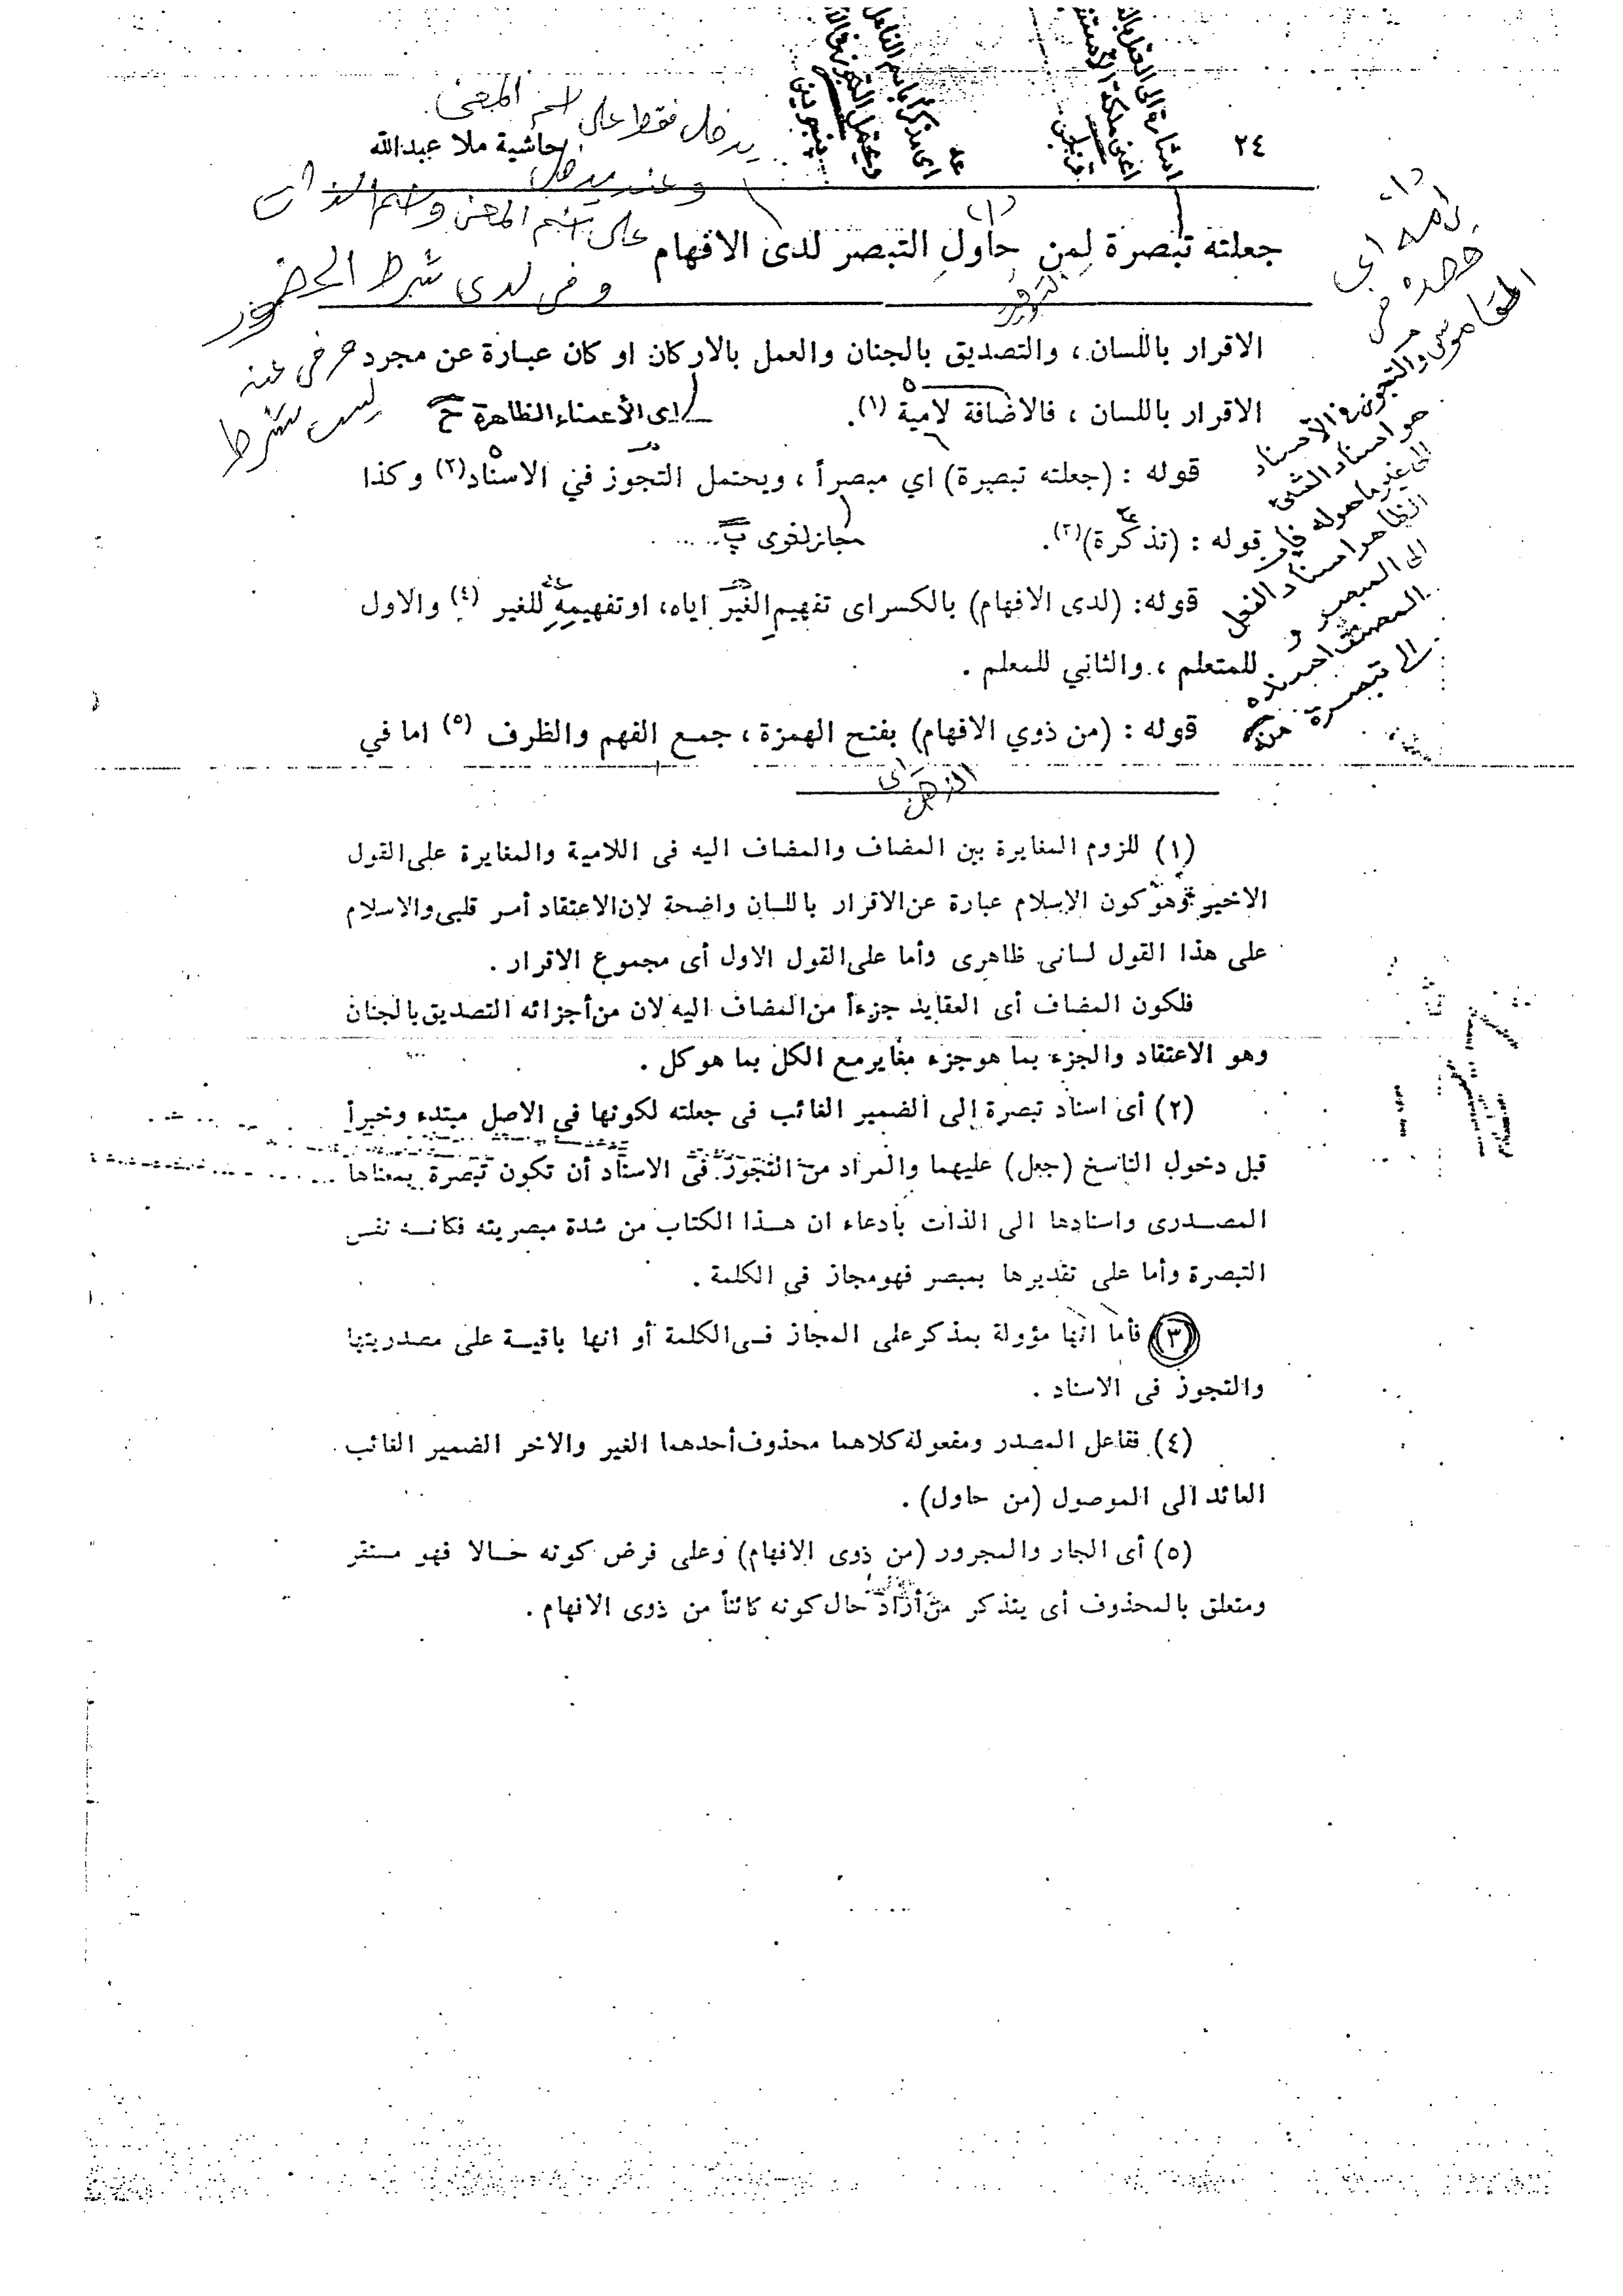 ٢٤
حاشية ملا عبدالله
يدخل فقط على اسم المعنى
وعند يدخل
على اسم المعنى واسم الذات
وفي لدى شرط الحضور
وفي عند
ليس شرط
جعلته تبصرة لمن حاول التبصر لدى الافهام
الاقرار باللسان ، والتصديق بالجنان والعمل بالاركان او كان عبارة عن مجرد
الاقرار باللسان ، فالاضافة لامية (١).
اى الأعضاء الظاهرة ح
قوله : (جعلته تبصرة) اي مبصراً ، ويحتمل التجوز في الاسناد(٢) وكذا
قوله : (تذكرة)(٣).
مجاز لغوى
قوله: (لدى الافهام) بالكسر اى تفهيم الغير اياه، او تفهيمه للغير (٤) والاول
للمتعلم ، والثاني للمعلم .
قوله : (من ذوي الافهام) بفتح الهمزة ، جمع الفهم والظرف (٥) اما في
رامه اى
قصده
والتجوز فى الاسناد
هو اسناد الشئ
الى غير ما هو له فان
الظاهر اسناد الفعل
الى المبصر و
المصنف اسنده
الى تبصرة منه
(١) للزوم المغايرة بين المضاف والمضاف اليه فى اللامية والمغايرة على القول
الاخير وهو كون الإسلام عبارة عن الاقرار باللسان واضحة لإن الاعتقاد أمر قلبى والاسلام
على هذا القول لسانى ظاهرى وأما على القول الاول أى مجموع الاقرار .
فلكون المضاف أى العقايد جزءاً من المضاف اليه لان من أجزائه التصديق بالجنان
وهو الاعتقاد والجزء بما هو جزء مغاير مع الكل بما هو كل .
(٢) أى اسناد تبصرة إلى الضمير الغائب فى جعلته لكونها فى الاصل مبتدء وخبراً
قبل دخول الناسخ (جعل) عليهما والمراد من التجوز فى الاسناد أن تكون تبصرة بمعناها
المصدرى واسنادها الى الذات بأدعاء ان هذا الكتاب من شدة مبصريته فكانه نفس
التبصرة وأما على تقديرها بمبصر فهو مجاز فى الكلمة .
(٣) فأما انها مؤولة بمذكر على المجاز فى الكلمة أو انها باقية على مصدريتها
والتجوز فى الاسناد .
(٤) فقاعل المصدر ومفعوله كلاهما محذوف أحدهما الغير والاخر الضمير الغائب
العائد الى الموصول (من حاول) .
(٥) أى الجار والمجرور (من ذوى الافهام) وعلى فرض كونه حالا فهو مستقر
ومتعلق بالمحذوف أى يتذكر من أراد حال كونه كائناً من ذوى الافهام .